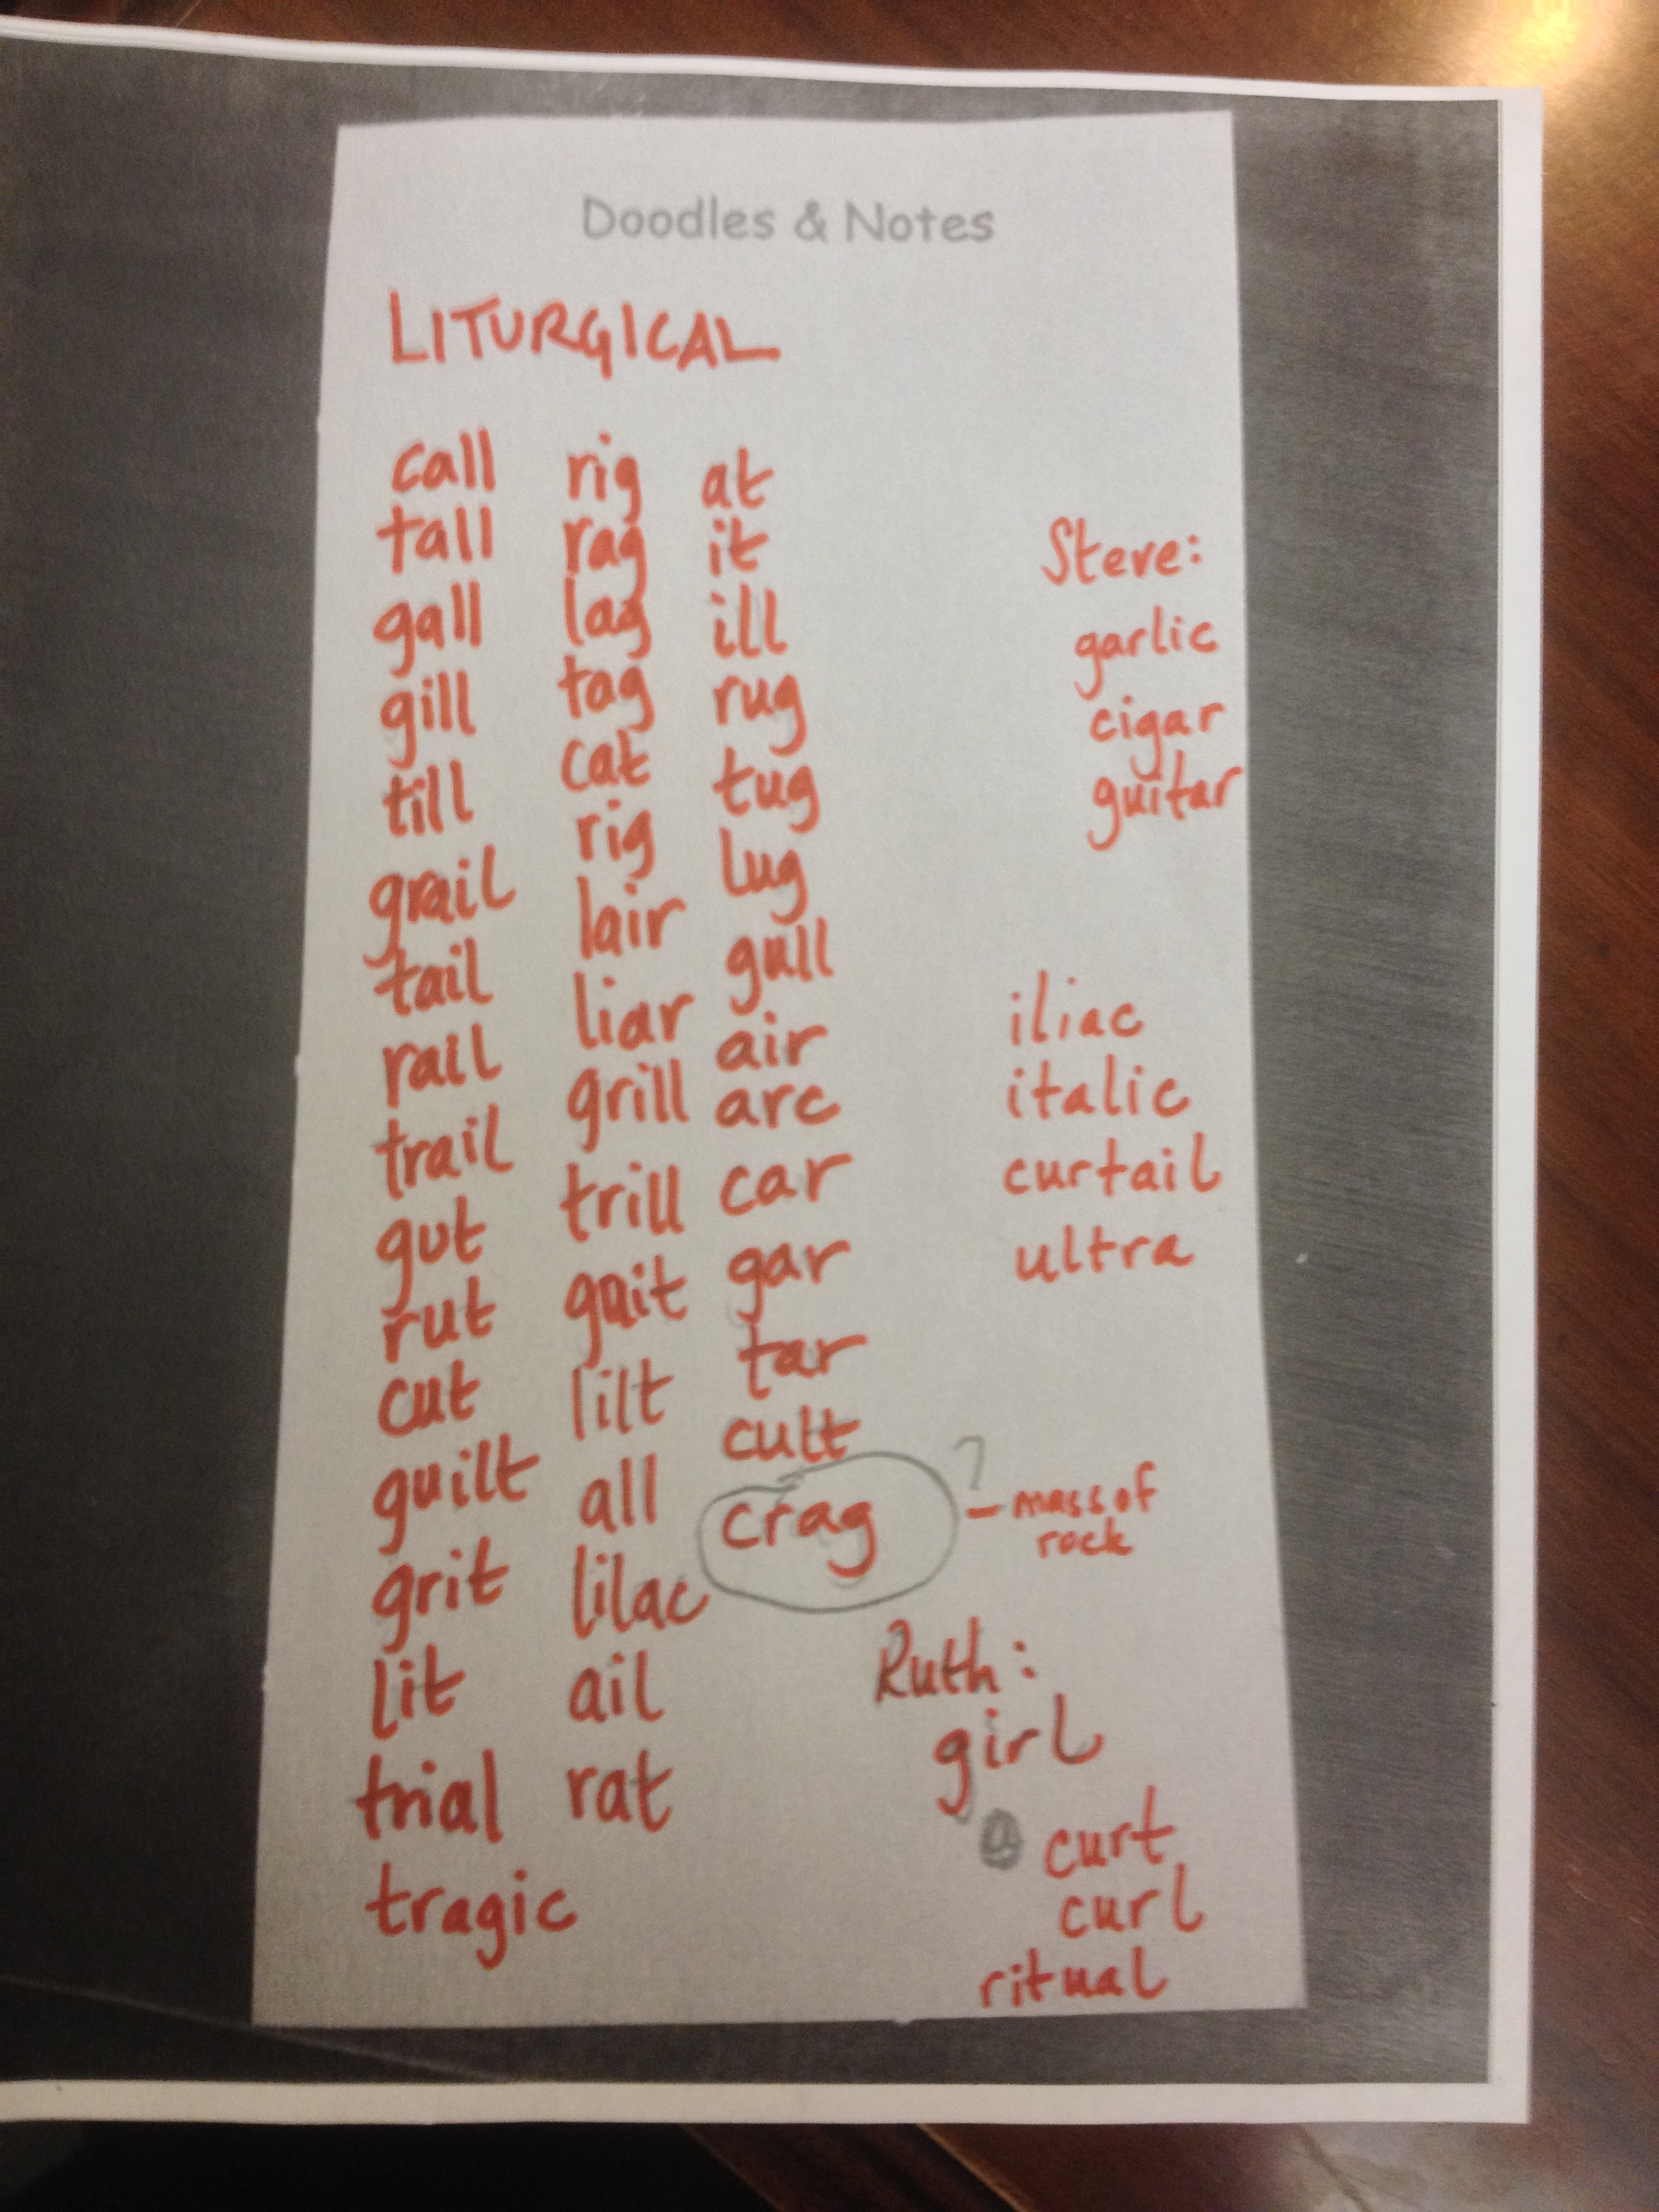 Doodles & Notes
LITURGICAL
call
tall
gall
gill
till
grail
tail
rail
trail
gut
rut
cut
guilt
grit
lit
trial
tragic
rig
rag
lag
tag
cat
rig
lair
liar
grill
trill
gait
lilt
all
lilac
ail
rat
at
it
ill
rug
tug
lug
gull
air
arc
car
gar
tar
cult
crag
?
– mass of
rock
Steve:
garlic
cigar
guitar
iliac
italic
curtail
ultra
Ruth:
girl
curt
curl
ritual